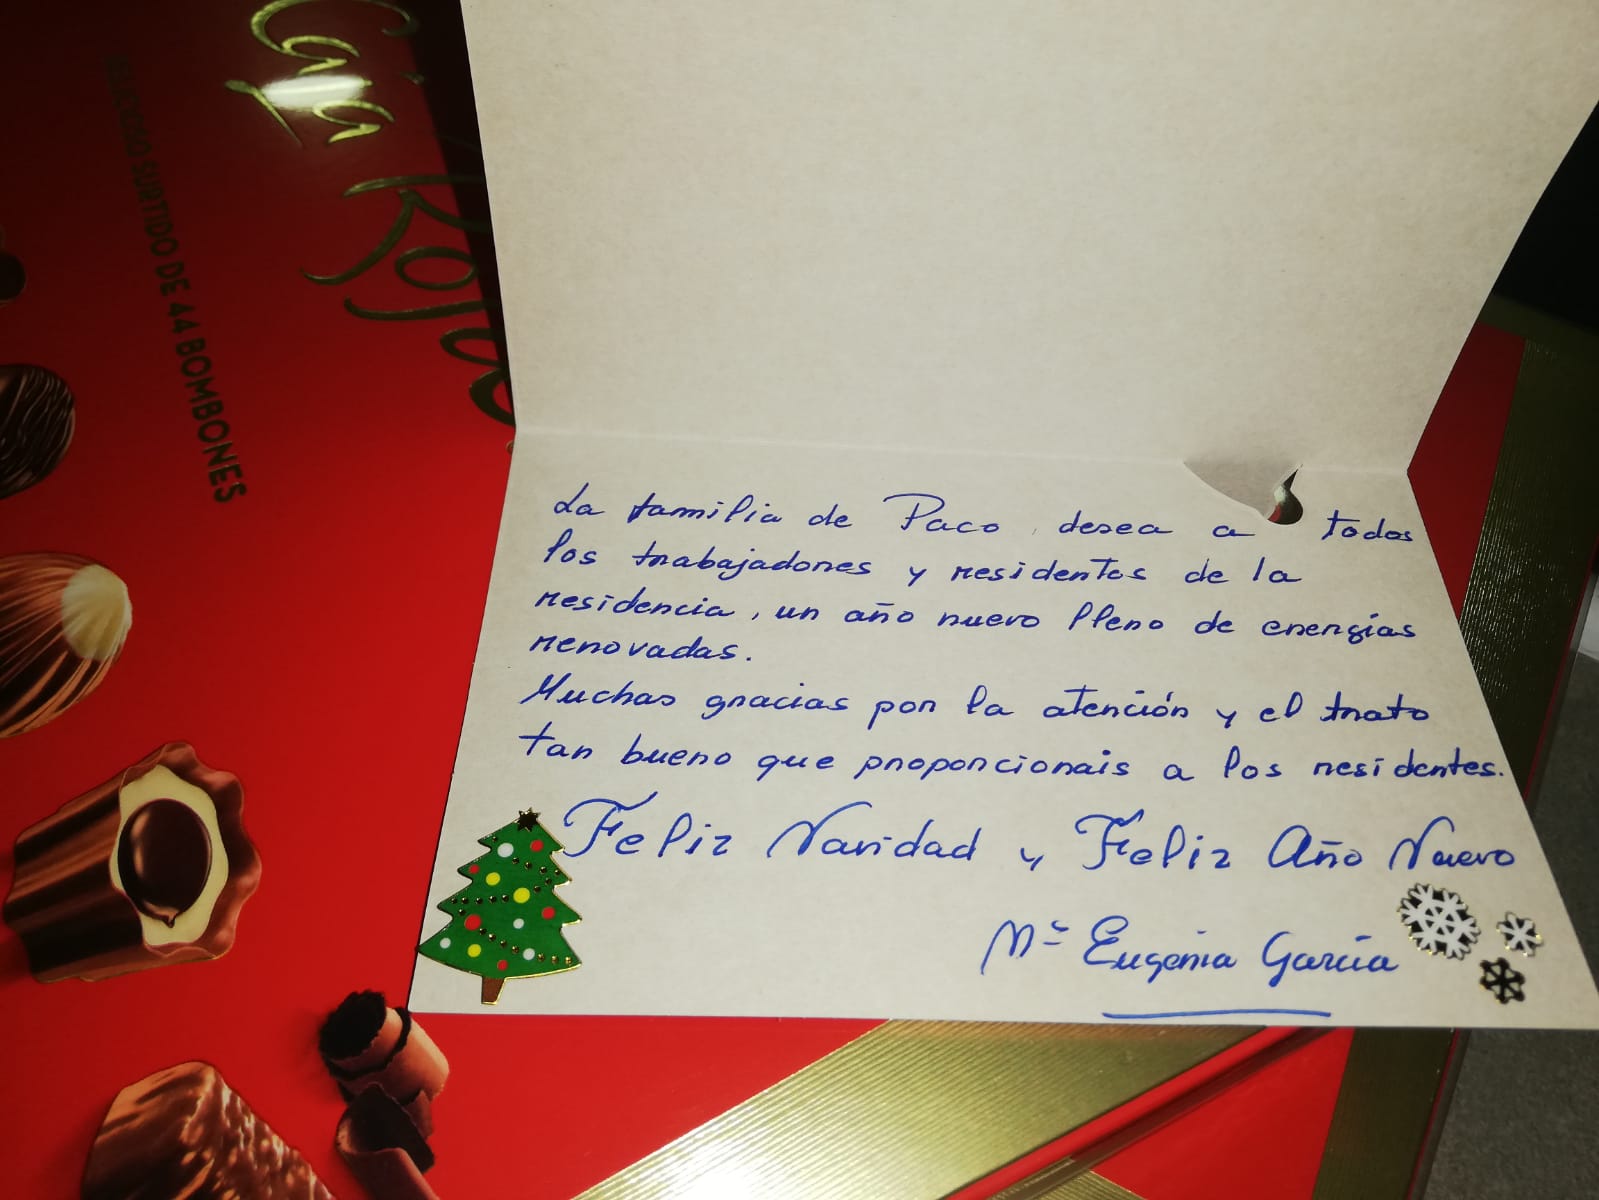 Caja Roja
DELICIOSO SURTIDO DE 44 BOMBONES
La familia de Paco, desea a todos
los trabajadores y residentes de la
residencia, un año nuevo lleno de energías
renovadas.
Muchas gracias por la atención y el trato
tan bueno que proporcionais a los residentes.
Feliz Navidad y Feliz Año Nuevo
Mª Eugenia García